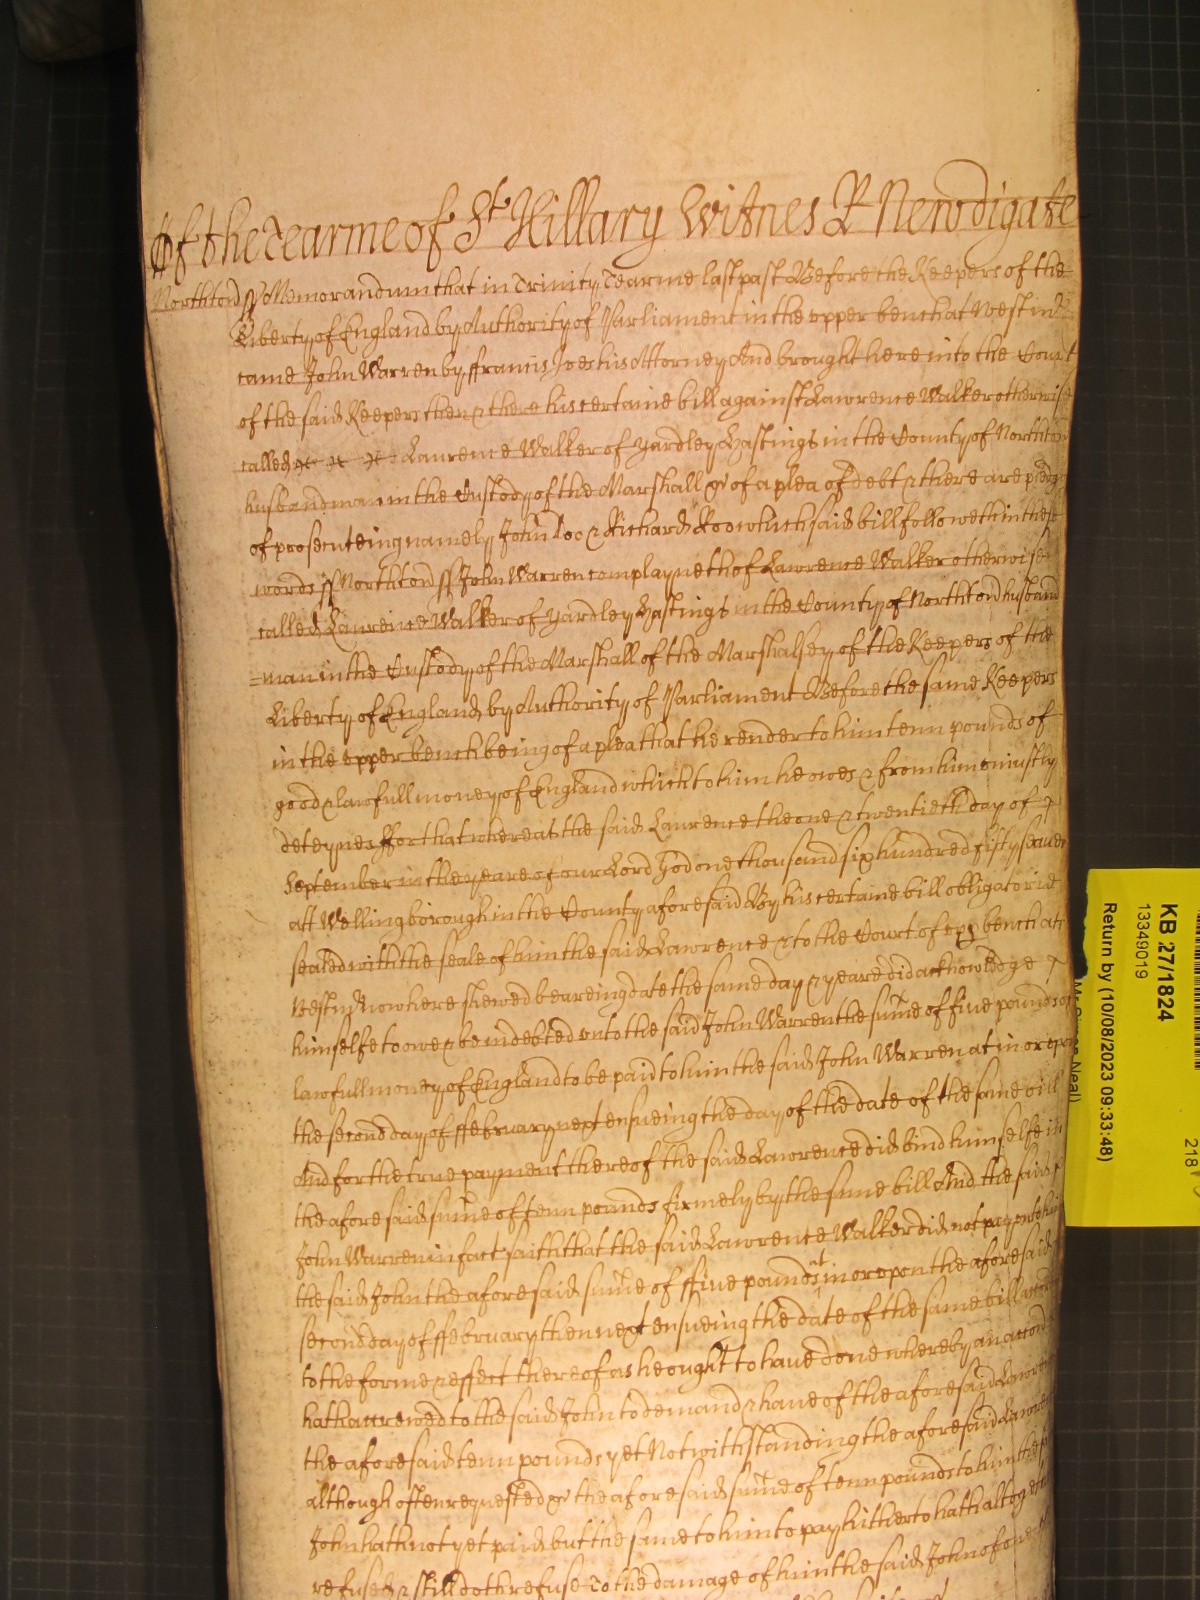 Of the Tearme of St Hillary Witnes R Newdigate
Northton ss Memorandum that in Trinity Tearme last past Before the Keepers of the
Liberty of England by Authority of Parliament in the vpper bench at Westm
came John Warren by ffrancis his Attorney And brought here into the Court
of the said Keepers then & there his certaine bill against Lawrence Walker otherwise
called Laurence Walker of Yardley Hastings in the County of Northton
husbandman in the Custody of the Marshall &c of a plea of debt & there are pledges
of prosecuteing namely John Doo & Richard Roo which said bill followeth in these
words ss Northton ss John Warren complayneth of Lawrence Walker otherwise
called Laurence Walker of Yardley Hastings in the County of Northton husband
=man in the Custody of the Marshall of the Marshalsey of the Keepers of the
Liberty of England by Authority of Parliament Before the same Keepers
in the vpper bench being of a plea that he render to him tenn pounds of
good & lawfull money of England which to him he owes & from him vniustly
deteynes ffor that whereas the said Laurence the one & twentieth day of
September in the yeare of our Lord God one thousand six hundred fifty seaven
att Wellingborough in the County aforesaid By his certaine bill obligatorie
sealed with the seale of him the said Lawrence & to the Court of vpp bench att
Westm now here shewed beareing date the same day & yeare did acknowledge
himselfe to owe & be indebted vnto the said John Warren the sume of five pounds of
lawfull money of England to be paid to him the said John Warren at in or vpon
the second day of ffebruary next ensueing the day of the date of the same bill
And for the true payment thereof the said Lawrence did bind himselfe in
the aforesaid sume of tenn pounds firmely by the same bill And the said
John Warren in fact saith that the said Lawrence Walker did not pay vnto him
the said John the aforesaid sume of ffive pounds at in or vpon the aforesaid
second day of ffebruary then next ensueing the date of the same bill
to the forme & effect thereof as he ought to have done whereby an accon
hath accrewed to the said John to demand & have of the aforesaid Lawrence
the aforesaid tenn pounds yet Notwithstanding the aforesaid Lawrence
although often requested &c the aforesaid sume of tenn pounds to him the
John hath not yet paid but the same to him to pay hitherto hath altogether
refused & still doth refuse To the damage of him the said John of
KB 27/1824
13349019
Return by (10/08/2023 09:33:48)
Neal)
218